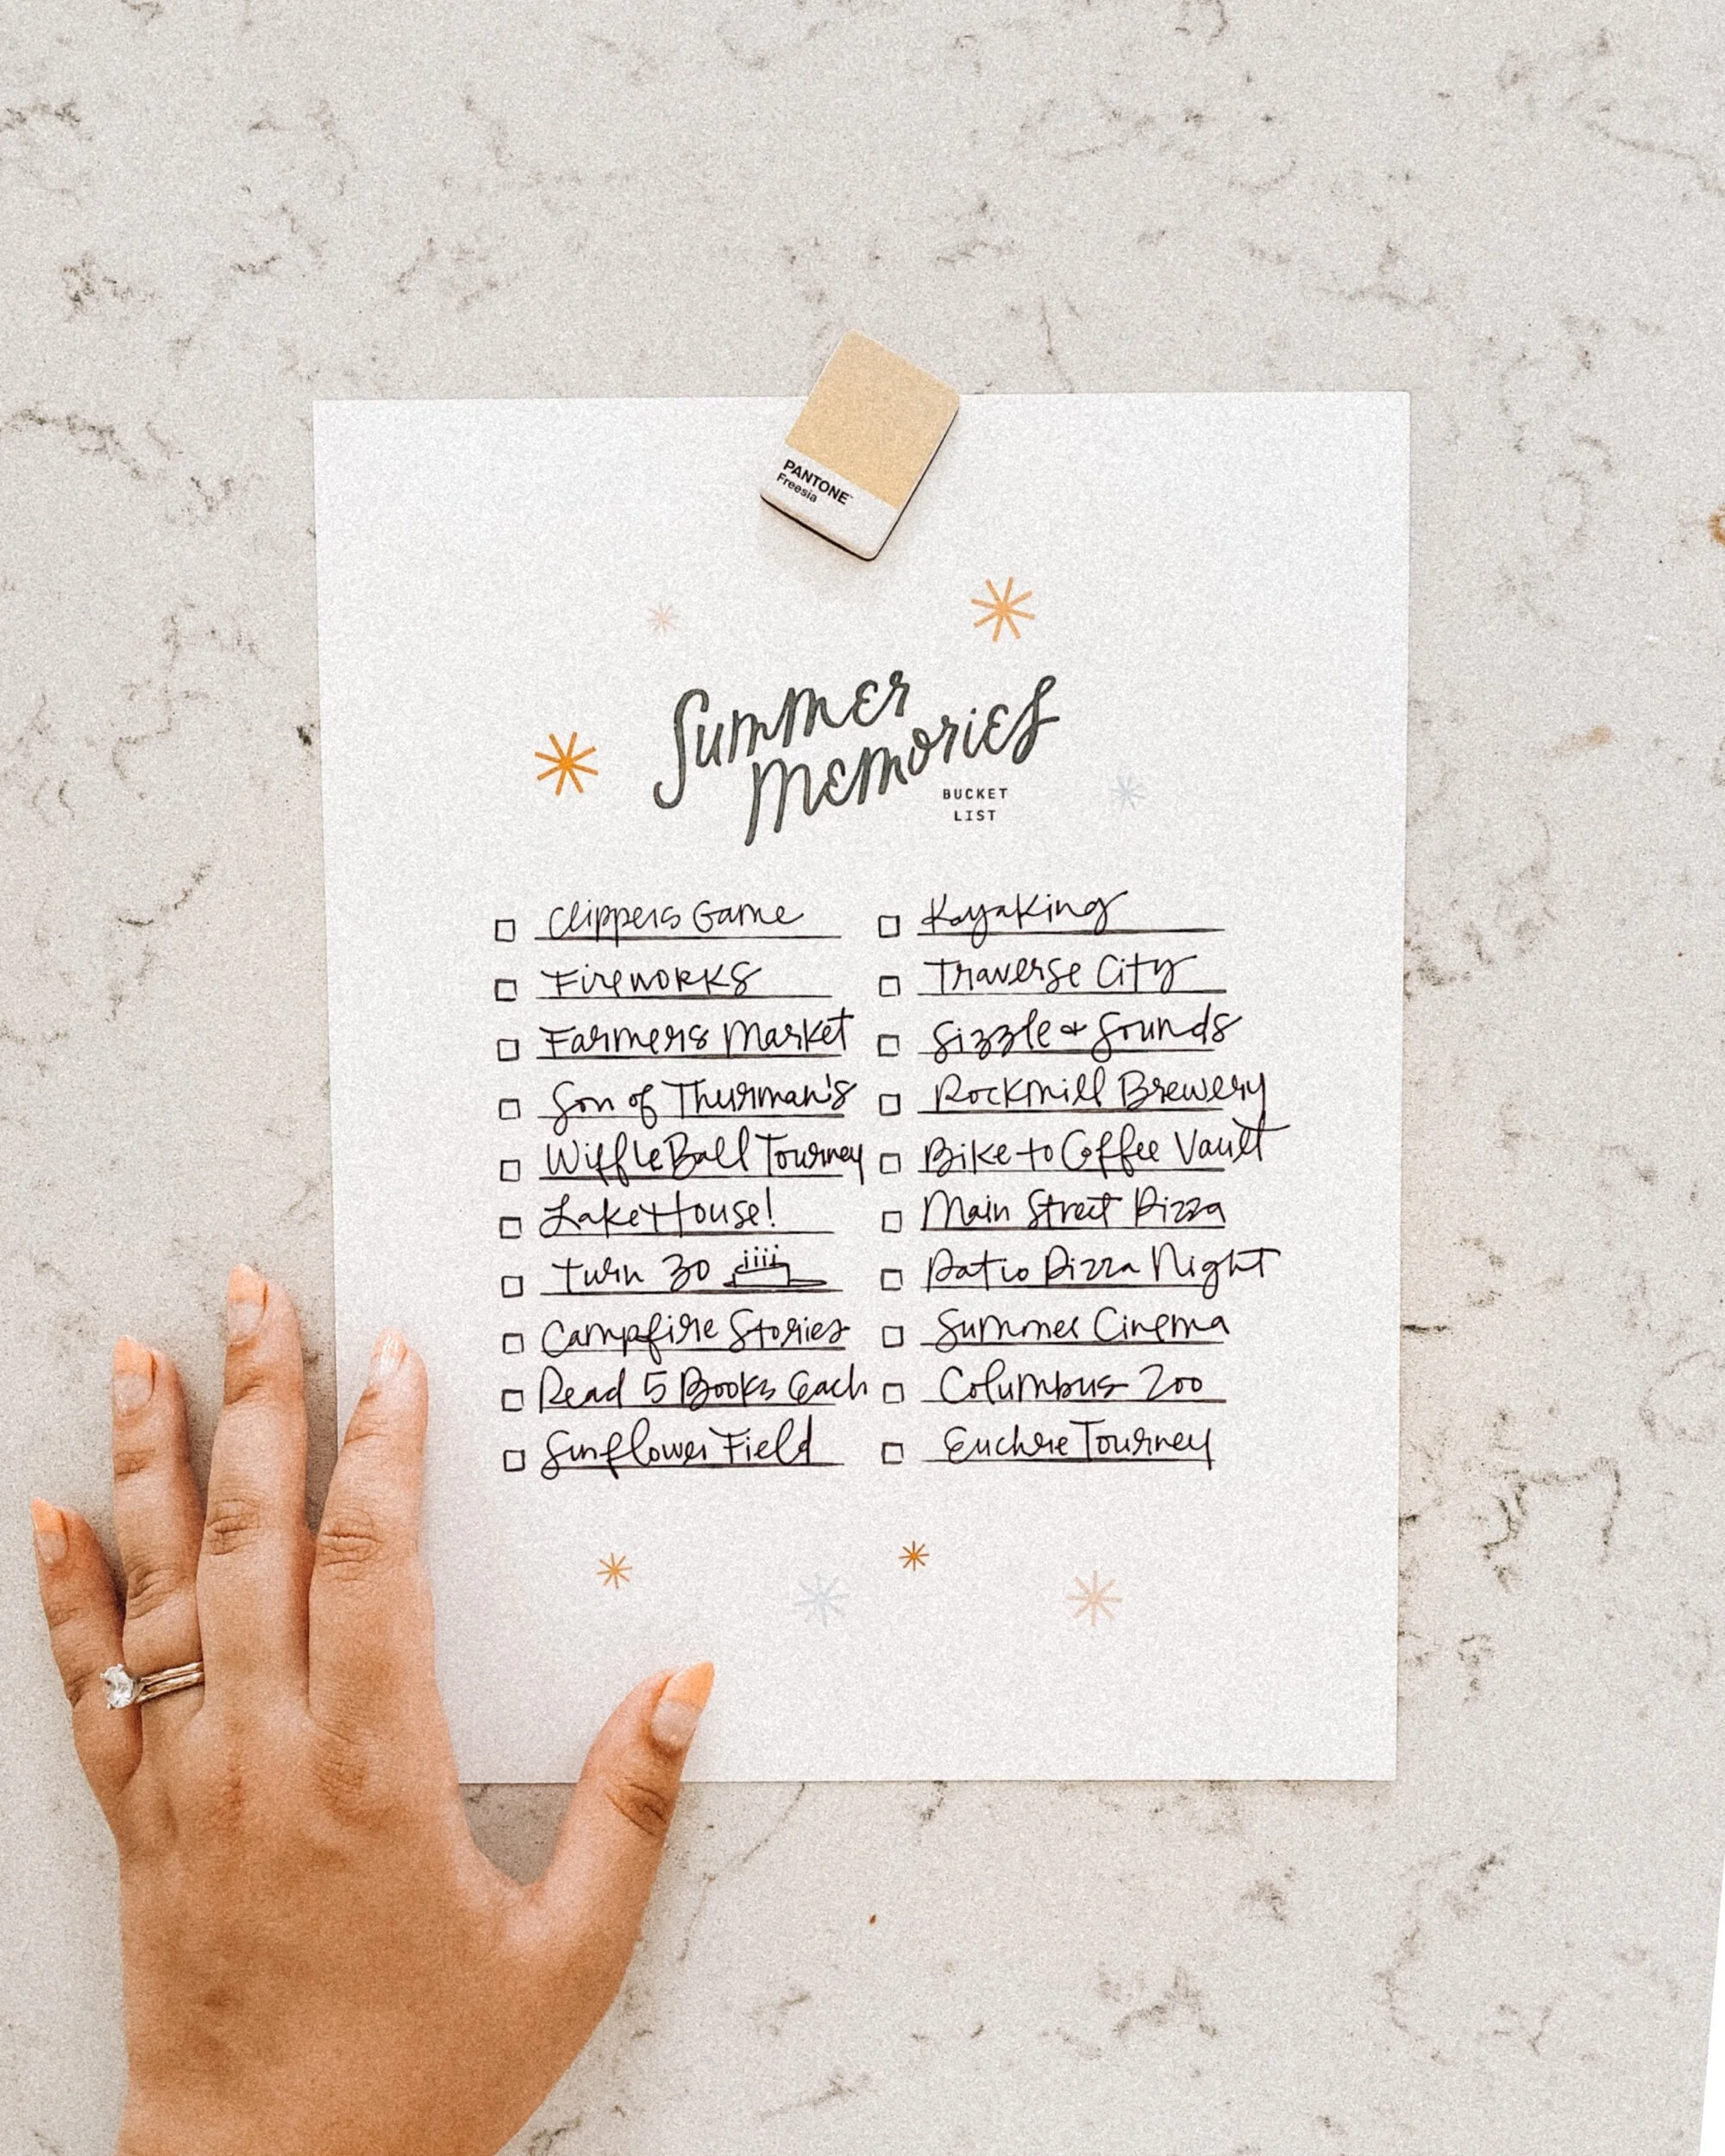 PANTONE
Freesia
Summer
Memories
BUCKET
LIST
Clippers Game
Fireworks
Farmers Market
Son of Thurman's
Wiffle Ball Tourney
Lake House!
Turn 30
Campfire Stories
Read 5 Books Each
Sunflower Field
Kayaking
Traverse City
Sizzle & Sounds
Rockmill Brewery
Bike to Coffee Vault
Main Street Pizza
Patio Pizza Night
Summer Cinema
Columbus Zoo
Euchre Tourney